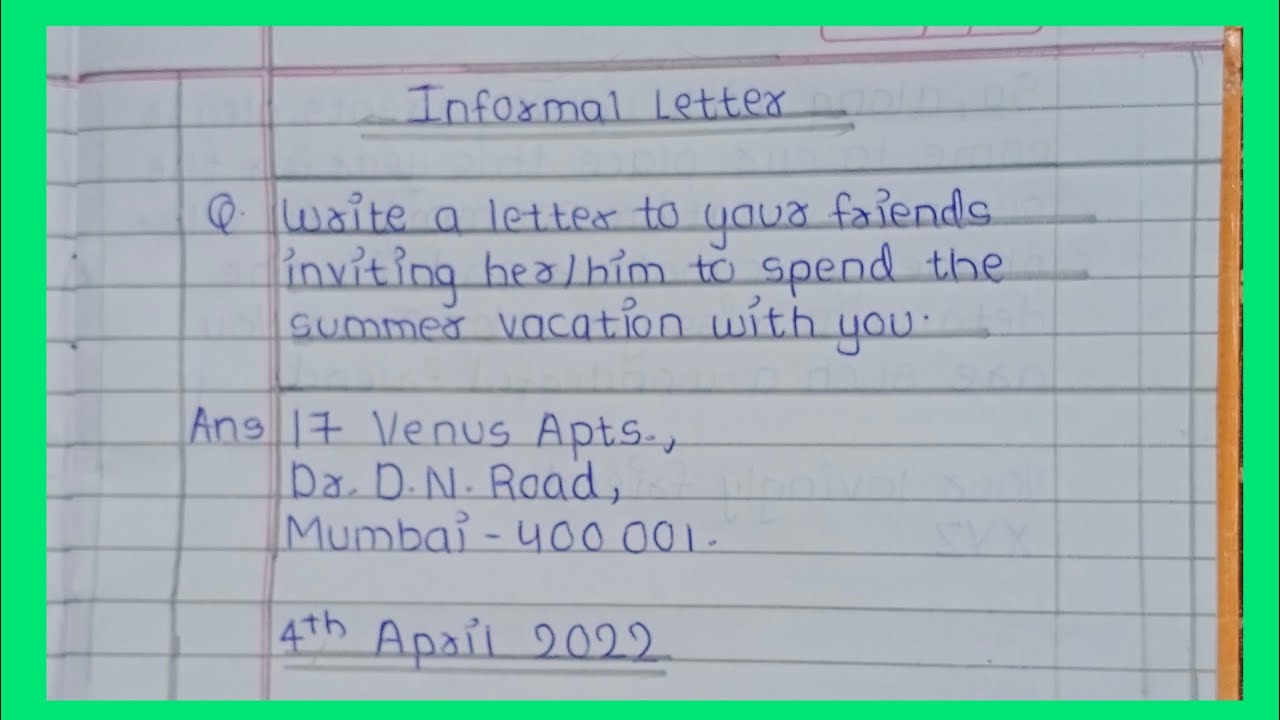 Informal Letter
Q. Write a letter to your friends
inviting her/him to spend the
summer vacation with you.
Ans 17 Venus Apts.,
Dr. D.N. Road,
Mumbai - 400 001.
4th April 2022